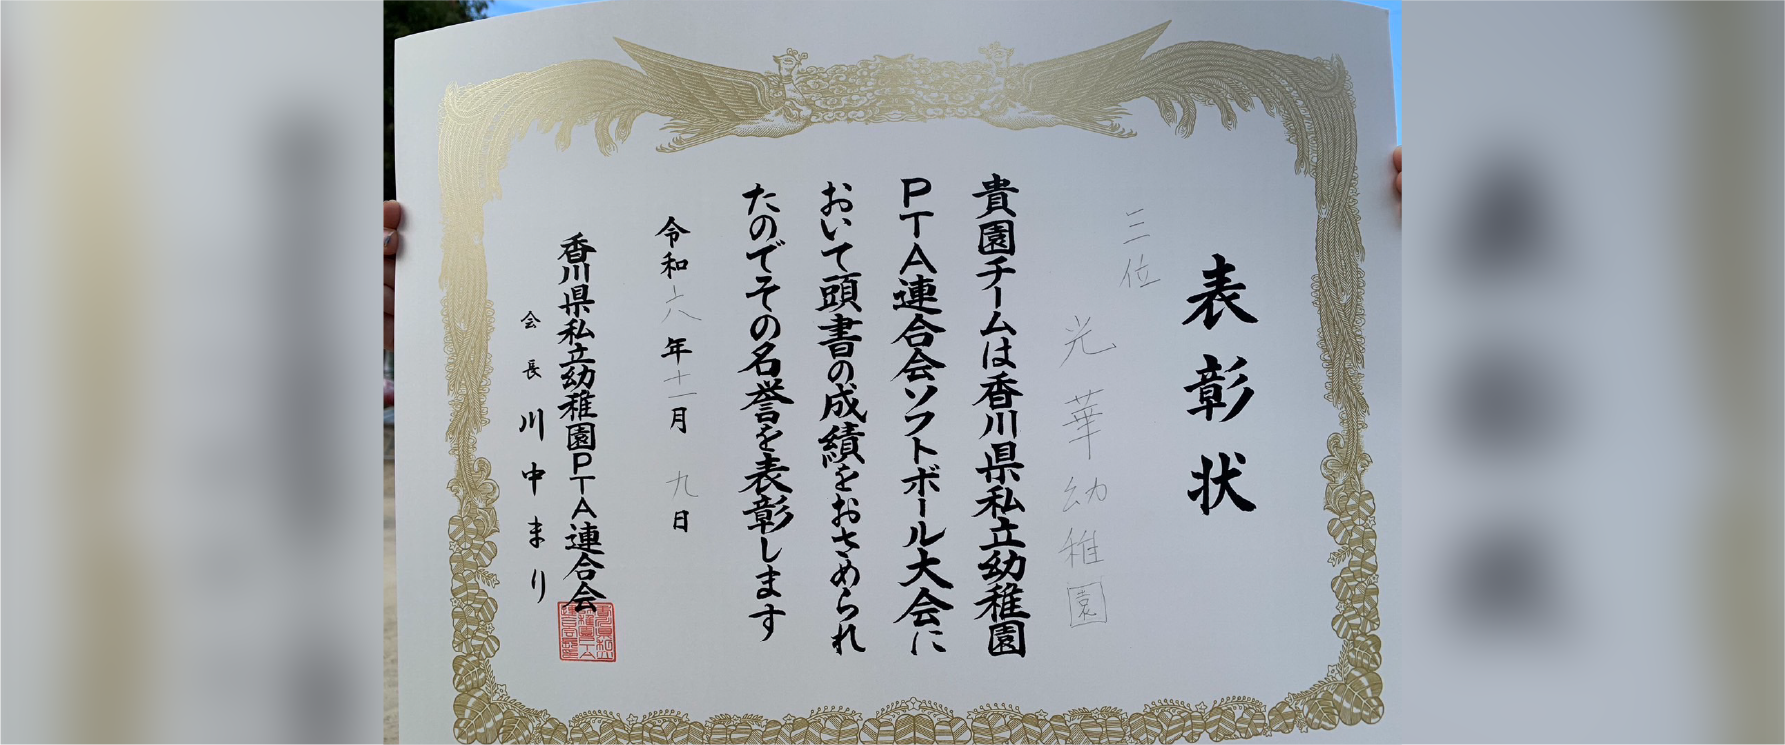 表彰状
三位
光華幼稚園
貴園チームは香川県私立幼稚園
PTA連合会ソフトボール大会に
おいて頭書の成績をおさめられ
たのでその名誉を表彰します
令和六年十一月九日
香川県私立幼稚園PTA連合会
会長 川中まり